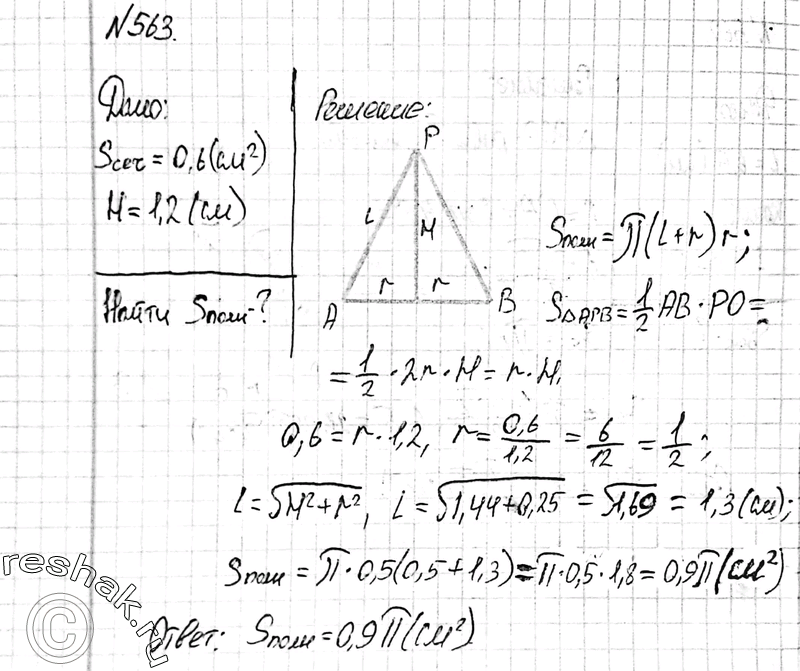 №563.
Дано:
Sсеч = 0,6 (см²)
H = 1,2 (см)
Найти Sполн - ?
Решение:
P
L
H
r r
A B
Sполн = π(L + r) r;
S△APB = 1/2 AB · PO =
= 1/2 · 2r · H = r · H.
0,6 = r · 1,2, r = 0,6/1,2 = 6/12 = 1/2;
L = √H² + r², L = √1,44 + 0,25 = √1,69 = 1,3 (см);
Sполн = π · 0,5 (0,5 + 1,3) = π · 0,5 · 1,8 = 0,9π (см²)
Ответ: Sполн = 0,9π (см²)
© reshak.ru